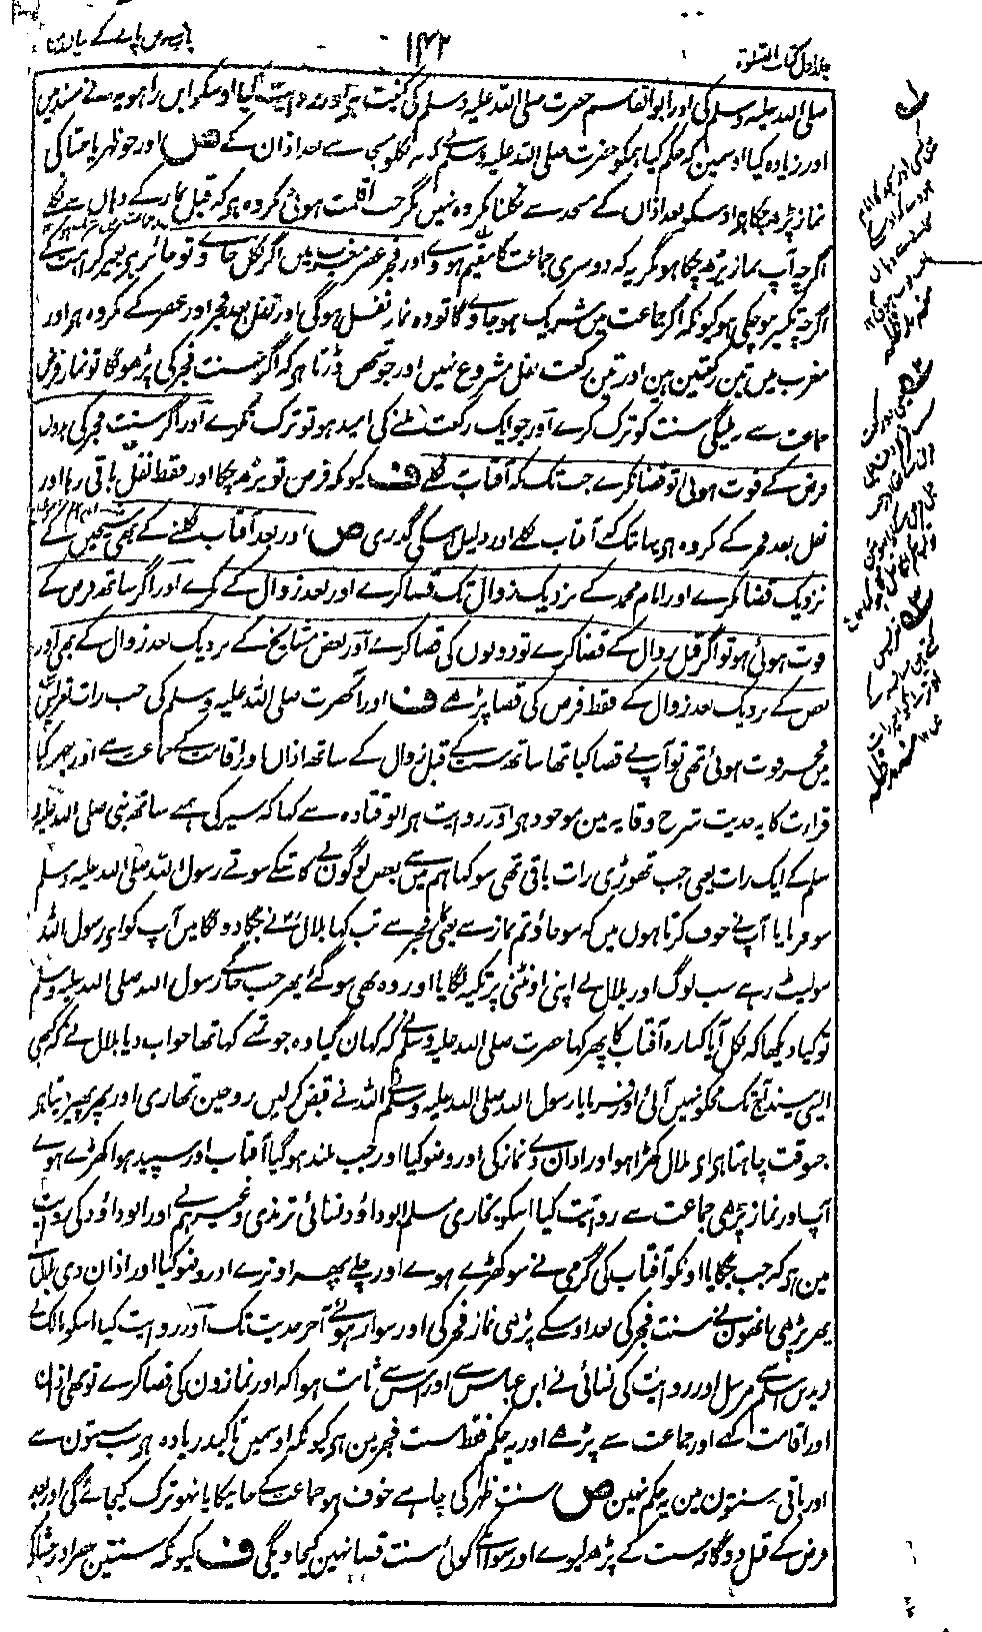 جلد اول کتاب الصلوۃ
۱۴۲
صلی اللہ علیہ وسلم کی اور ابو القاسم حضرت صلی اللہ علیہ وسلم کی کنیت ہر اور روایت کیا اوسکو ابن راہویہ نے مسند میں
اور زیادہ کیا اوسمین کہ حکم کیا ہمکو حضرت صلی اللہ علیہ وسلم نے کہ نہ نکلو مسجد سے بعد اذان کے ص اور جو ظہر یا عشا کی
نماز پڑھ چکا ہر اوسکو بعد اذاں کے مسجد سے نکلنا مکروہ نہیں مگر جب اقامت ہوئی مکروہ ہر کہ قبل نماز کے وہاں سے نکلے
اگرچہ آپ نماز پڑھ چکا ہو مگر یہ کہ دوسری جماعت کا مقیم ہووے اور فجر عصر مغرب میں اگر نکل جاوے تو جائز ہر بغیر کراہت کے
اگرچہ تکبیر ہو چکی ہو کیونکہ اگر جماعت میں شریک ہو جاویگا تو وہ نماز نفل ہوگی اور نفل بعد فجر اور عصر کے مکروہ ہر اور
مغرب میں تین رکعتین ہین اور تین رکعت نفل مشروع نہیں اور جو شخص ڈرتا ہر کہ اگر سنت فجر کی پڑھوںگا تو نماز فرض
جماعت سے نہ ملیگی سنت کو ترک کرے اور جو ایک رکعت ملنے کی امید ہو تو ترک نکرے اور اگر سنت فجر کی بدوں
فرض کے فوت ہوئی تو قضا نکرے جب تک کہ آفتاب نکلے ف کیونکہ فرض تو پڑھ چکا اور فقط نفل باقی رہا اور
نفل بعد فجر کے مکروہ ہر یہانتک کہ آفتاب نکلے اور دلیل اسکی گذری ص اور بعد آفتاب نکلنے کے بھی شیخین کے
نزدیک قضا نکرے اور امام محمد کے نزدیک زوال تک قضا کرے اور بعد زوال کے نکرے اور اگر ساتھ فرض کے
فوت ہوئی ہو تو اگر قبل زوال کے قضا کرے تو دونوں کی قضا کرے اور بعض مشایخ کے نزدیک بعد زوال کے بھی اور
بعض کے نزدیک بعد زوال کے فقط فرض کی قضا پڑھے ف اور آنحضرت صلی اللہ علیہ وسلم کی جب رات تعریس
میں فجر فوت ہوئی تھی تو آپ نے قضا کیا تھا ساتھ سنت کے قبل زوال کے ساتھ اذاں اور اقامت کے جماعت سے اور جہر کیا
قراءت کا یہ حدیث شرح وقایہ مین موجود ہر اور روایت ہر ابو قتادہ سے کہا کہ سیر کی ہمنے ساتھ نبی صلی اللہ علیہ
وسلم کے ایک رات یعی جب تھوڑی رات باقی تھی سو کہا ہم میں سے بعض لوگون نے کاشکے سوتے رسول اللہ صلی اللہ علیہ وسلم
سو فرمایا آپ نے خوف کرتا ہوں میں کہ سو جاؤ تم نماز سے یعنی فجر سے تب کہا بلال نے جگا دونگا میں آپ کو ای رسول اللہ
سو لیٹ رہے سب لوگ اور بلال نے اپنی اونٹنی پر تکیہ لگایا اور وہ بھی سو گئے پھر جب جاگے رسول اللہ صلی اللہ علیہ وسلم
تو کیا دیکھا کہ نکل آیا کنارہ آفتاب کا پھر کہا حضرت صلی اللہ علیہ وسلم نے کہ کہان گیا وہ جو تمنے کہا تھا جواب دیا بلال نے کہ کبھی
ایسی نیند آج تک مجکو نہیں آئی اور فرمایا رسول اللہ صلی اللہ علیہ وسلم نے اللہ نے قبض کر لیں روحین تمھاری اور پھر پھیر دیتا ہر
جسوقت چاہتا ہر ای بلال کھڑا ہو اور اذان دے نماز کی اور وضو کیا اور جب بلند ہو گیا آفتاب اور سپید ہوا کھڑے ہوے
آپ اور نماز پڑھی جماعت سے روایت کیا اسکو بخاری مسلم ابو داؤد نسائی ترمذی وغیرہم نے اور ابو داؤد کی روایت
مین ہر کہ جب جگایا اونکو آفتاب کی گرمی نے سو کھڑے ہوے اور چلے پھر اوترے اور وضو کیا اور اذان دی بلال نے
پھر پڑھی انھون نے سنت فجر کی بعد اوسکے پڑھی نماز فجر کی اور سوار ہوئے آخر حدیث تک اور روایت کیا اسکو مالک نے
زید بن اسلم سے مرسل اور روایت کی نسائی نے ابن عباس سے اور اس سے ثابت ہوا کہ اور نمازون کی قضا کرے تو بھی اذان
اور اقامت کہے اور جماعت سے پڑھے اور یہ حکم فقط سنت فجر مین ہر کیونکہ اوسمین تاکید زیادہ ہر سب سنتون سے
اور باقی سنتون مین یہ حکم نہین ص سنت ظہر کی چاہے خوف ہو جماعت کے جانیکا یا نہو ترک کیجائے گی اور بعد
فرض کے قبل دوگانہ سنت کے پڑھ لیوے اور سواے اسکے کوئی سنت قضا نہین کیجاویگی ف کیونکہ سنتین عصر اور عشا کی